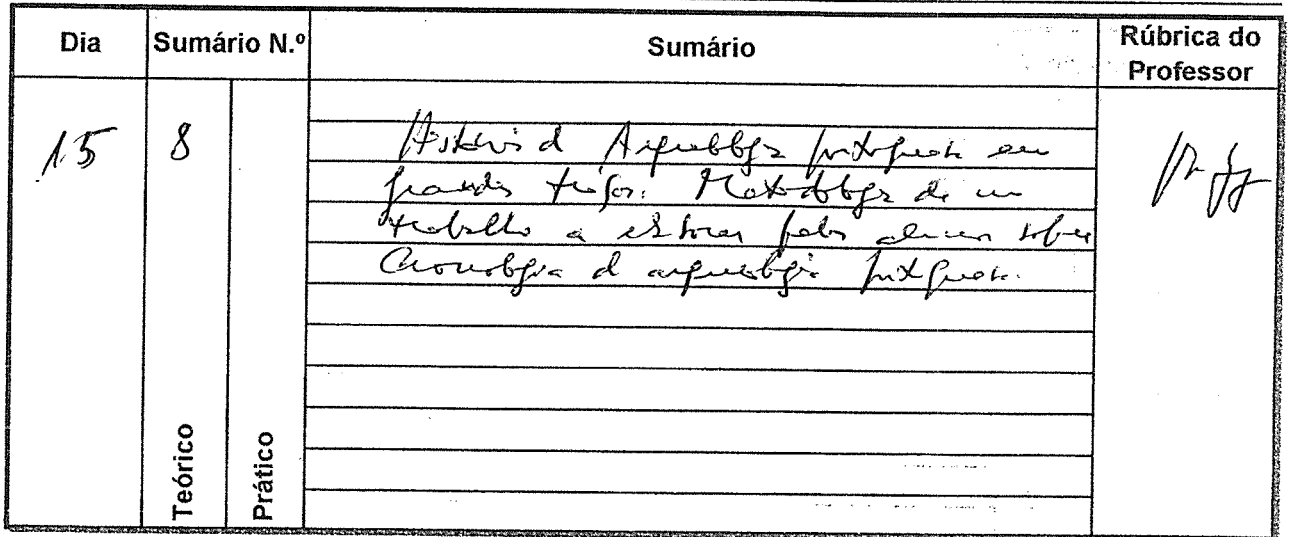 Dia Sumário N.º Sumário Rúbrica do Professor
15 8
História d Arqueologia portuguesa em
grandes traços. Metodologia de um
trabalho a pelos alunos sobre
Cronologia d arqueologia portuguesa.
Teórico
Prático